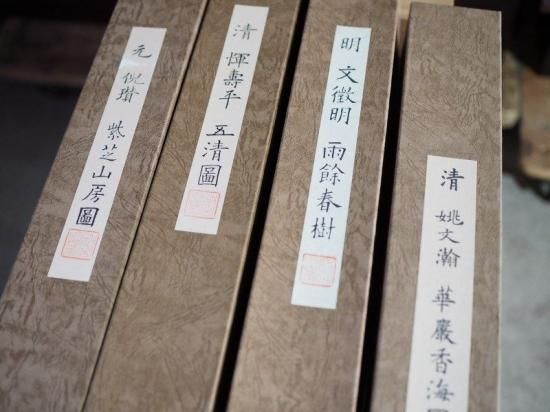 元 倪瓚 紫芝山房圖
清 惲壽平 五清圖
明 文徵明 雨餘春樹
清 姚文瀚 華嚴香海圖